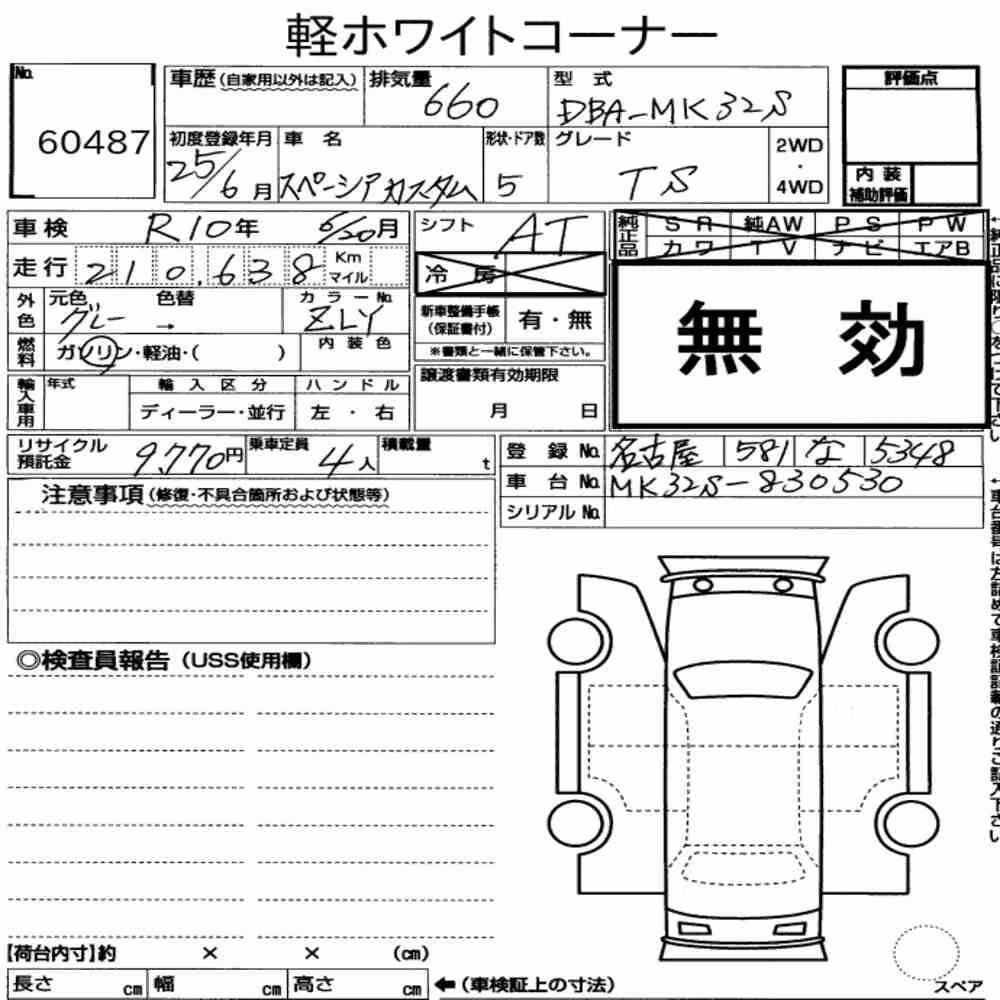 軽ホワイトコーナー
No. 60487
車歴(自家用以外は記入) 排気量 660 型式 DBA-MK32S 評価点
初度登録年月 25/6月 車名 スペーシアカスタム 形状・ドア数 5 グレード TS 2WD・4WD 内装補助評価
車検 R10年 6/20月 シフト AT 純正品 SR 純AW PS PW
カワ TV ナビ エアB
走行 210,638 Km マイル 冷房
外色 元色 グレー 色替 → カラーNo. ZLY 新車整備手帳(保証書付) 有・無
無効
燃料 ガソリン・軽油・( ) 内装色 ※書類と一緒に保管下さい。
輸入車用 年式 輸入区分 ハンドル 譲渡書類有効期限
ディーラー・並行 左・右 月 日
リサイクル預託金 9,770円 乗車定員 4人 積載量 t 登録No. 名古屋 581 な 5348
注意事項(修復・不具合箇所および状態等) 車台No. MK32S-830530
シリアルNo.
◎検査員報告(USS使用欄)
【荷台内寸】約 × × (cm)
長さ cm 幅 cm 高さ cm ←(車検証上の寸法)
スペア
↑純正品に限り○をつけて下さい
↑車台番号は左詰めで車検証記載の通りご記入下さい